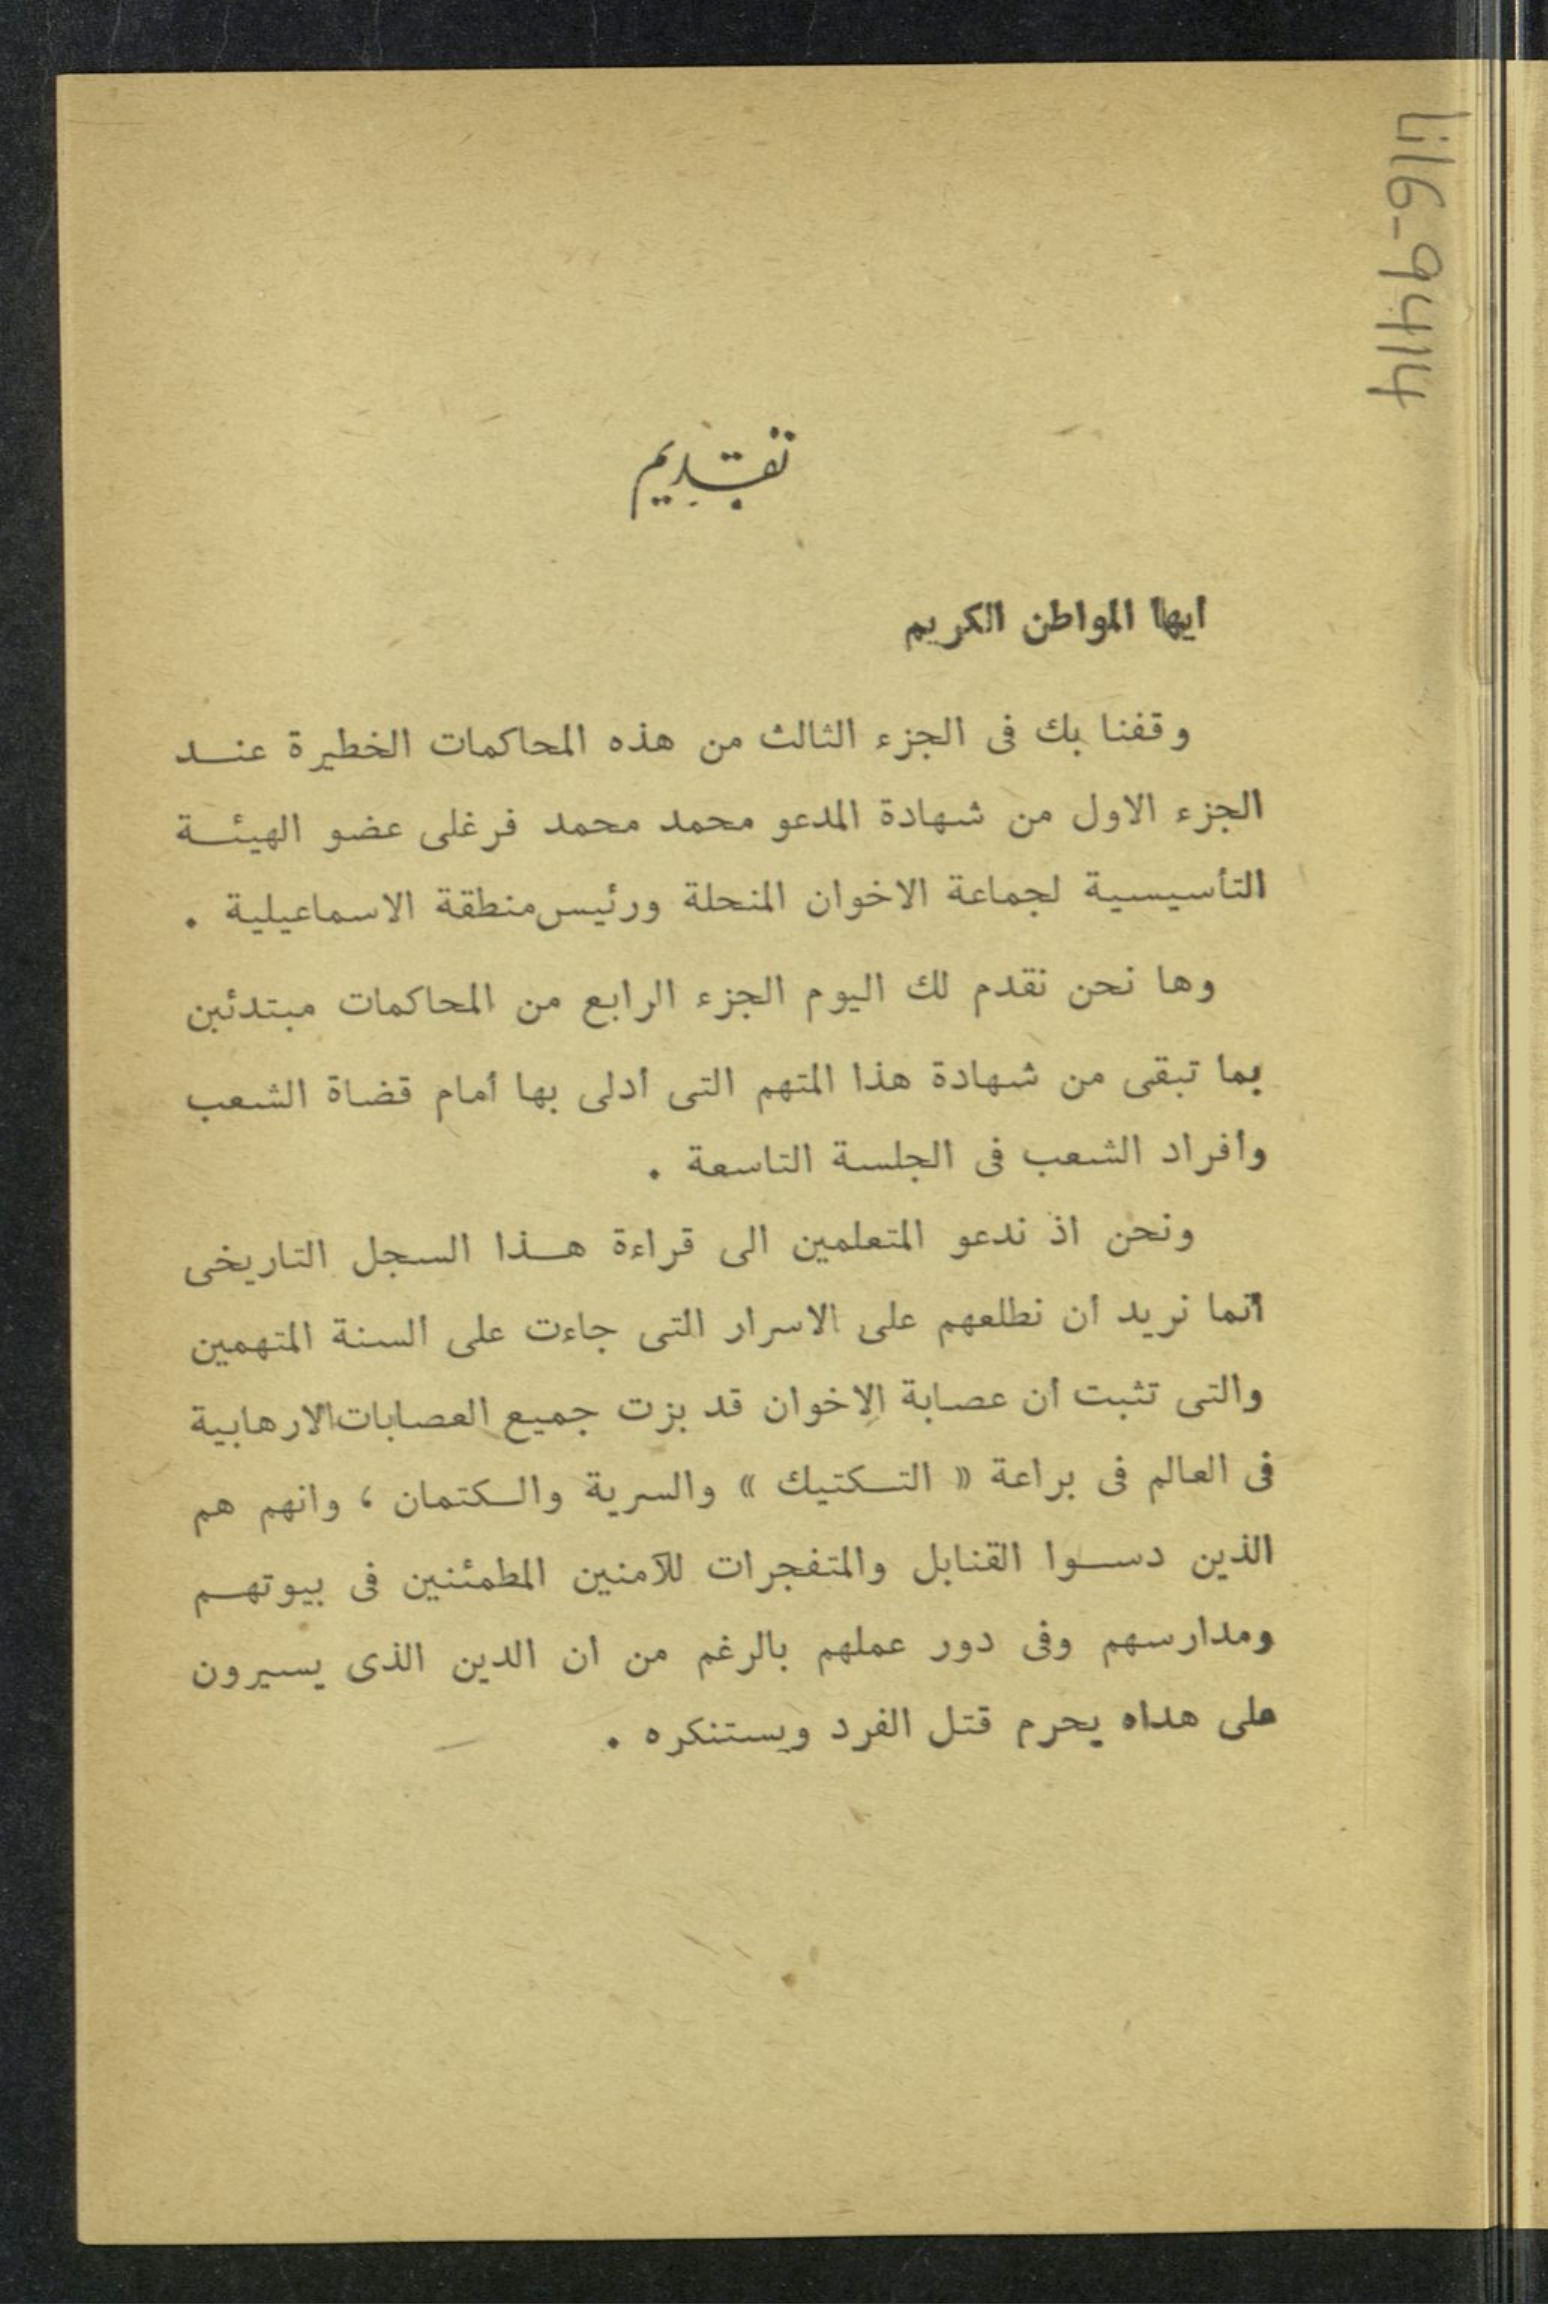 لi16-9414
تقديم
ايها المواطن الكريم
وقفنا بك فى الجزء الثالث من هذه المحاكمات الخطيرة عنـد
الجزء الاول من شهادة المدعو محمد محمد فرغلى عضو الهيئـة
التأسيسية لجماعة الاخوان المنحلة ورئيس منطقة الاسماعيلية .
وها نحن نقدم لك اليوم الجزء الرابع من المحاكمات مبتدئين
بما تبقى من شهادة هذا المتهم التى أدلى بها أمام قضاة الشعب
وأفراد الشعب فى الجلسة التاسعة .
ونحن اذ ندعو المتعلمين الى قراءة هـذا السجل التاريخى
انما نريد أن نطلعهم على الاسرار التى جاءت على ألسنة المتهمين
والتى تثبت أن عصابة الاخوان قد بزت جميع العصابات الارهابية
فى العالم فى براعة « التـكتيك » والسرية والـكتمان ، وانهم هم
الذين دسـوا القنابل والمتفجرات للآمنين المطمئنين فى بيوتهـم
ومدارسهم وفى دور عملهم بالرغم من ان الدين الذى يسيرون
على هداه يحرم قتل الفرد ويستنكره .